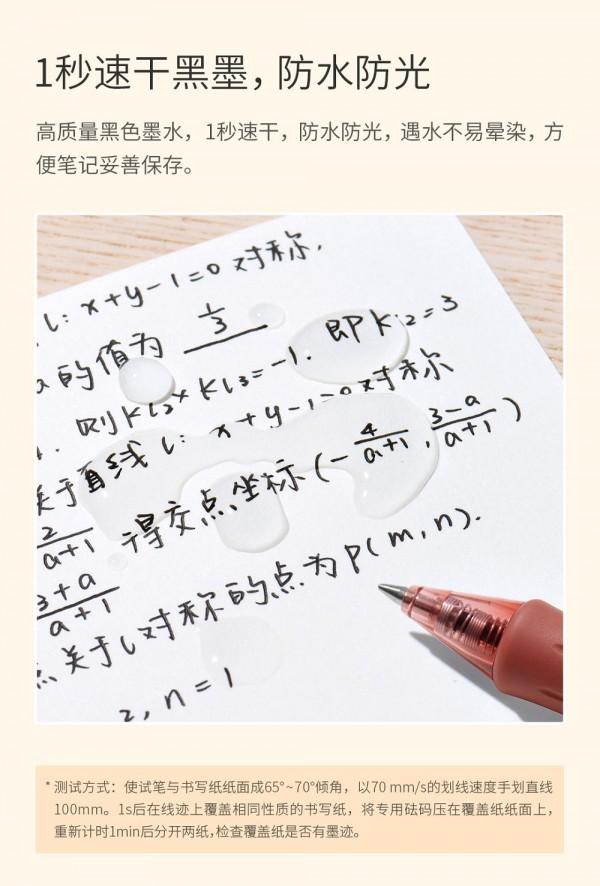 1秒速干黑墨，防水防光
高质量黑色墨水，1秒速干，防水防光，遇水不易晕染，方
便笔记妥善保存。
l: x+y-1=0 对称,
a的值为 1/3
即 k l2 = 3
则 k l2 × k l3 = -1.
直线 l: x+y-1=0 对称
关于
(-4/(a+1), 3-a/(a+1))
2/(a+1) 得交点坐标
3+a/(a+1)
点关于l对称的点为P(m,n).
2, n=1
* 测试方式：使试笔与书写纸纸面成65°~70°倾角，以70 mm/s的划线速度手划直线
100mm。1s后在线迹上覆盖相同性质的书写纸，将专用砝码压在覆盖纸纸面上，
重新计时1min后分开两纸,检查覆盖纸是否有墨迹。